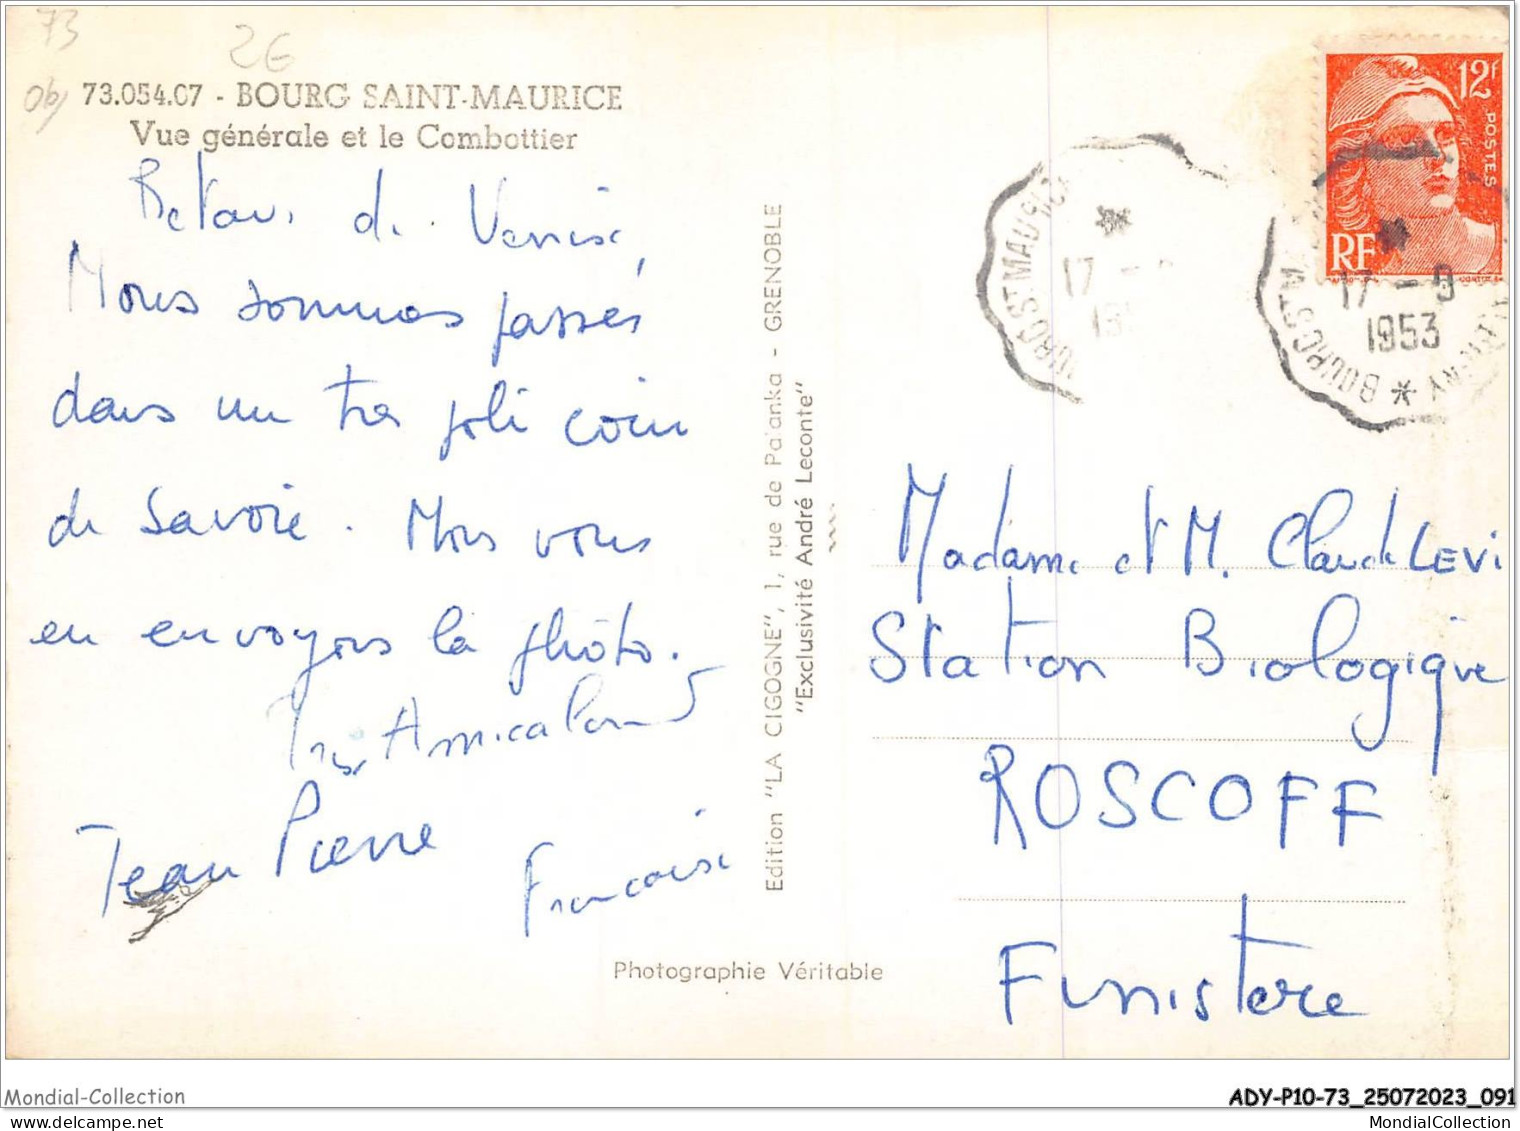 73
2€
73.054.07 - BOURG SAINT-MAURICE
Vue générale et le Combottier
Retour de Venise,
Nous sommes passés
dans un tres joli coin
de Savoie. Nous vous
en envoyons la photo.
Amicalement
Jean Pierre
Francoise
Edition "LA CIGOGNE", 1, rue de Palanka - GRENOBLE
"Exclusivité André Leconte"
Photographie Véritable
12F
POSTES
RF
BOURG ST MAURICE
17 -
BOURG ST M
17 - 9
1953
Madame et M. Claude LEVI
Station Biologique
ROSCOFF
Finistere
Mondial-Collection
ADY-P10-73_25072023_091
www.mondialcollection.com
MondialCollection.com